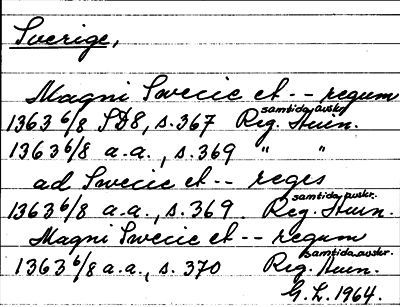 Sverige,
Magni Swecie et -- regum
1363 6/8 SD8, s.367 Reg. Huin. samtida avskr.
1363 6/8 a.a., s.369 " "
ad Swecie et -- reges
1363 6/8 a.a., s.369. Reg. Huin. samtida avskr.
Magni Swecie et -- regum
1363 6/8 a.a., s.370 Reg. Huin. samtida avskr.
G.L. 1964.